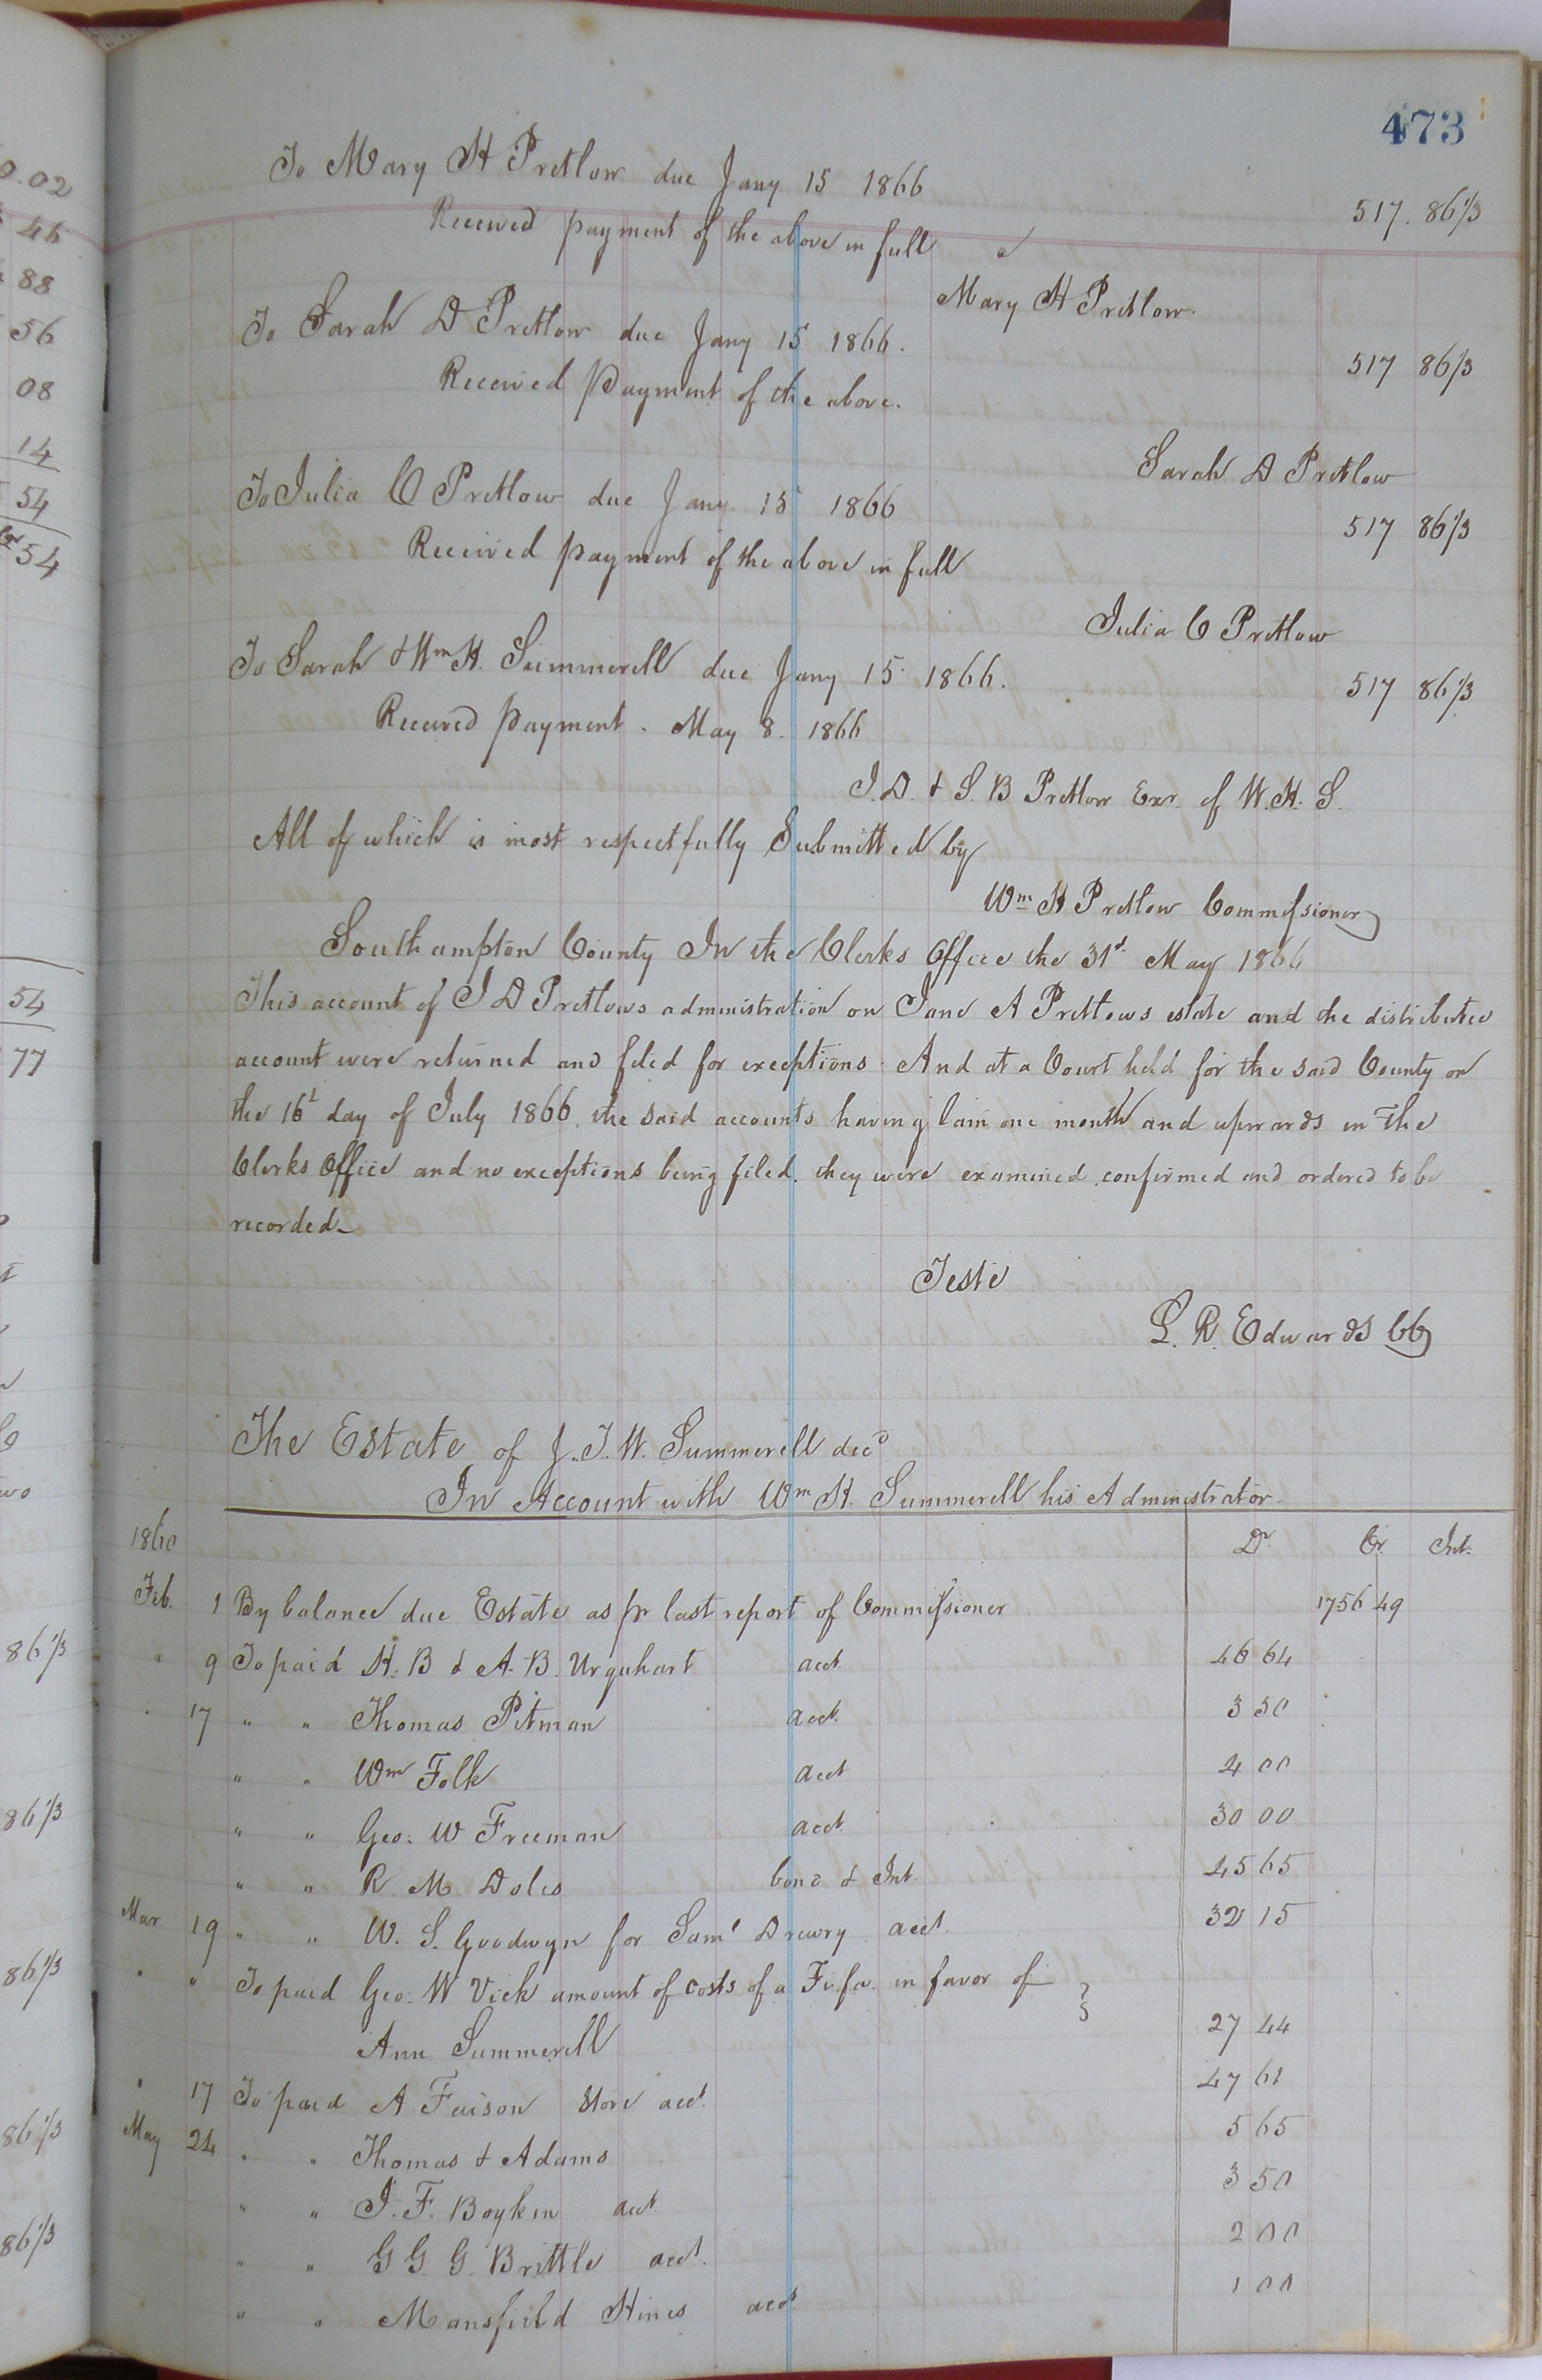 473
To Mary H Pretlow due Jany 15 1866 517. 86 1/3
Received payment of the above in full
Mary H Pretlow.
To Sarah D Pretlow due Jany 15 1866. 517 86 1/3
Received Payment of the above.
Sarah D Pretlow
To Julia C Pretlow due Jany. 15 1866 517 86 1/3
Received payment of the above in full
Julia C Pretlow
To Sarah & Wm H. Summerell due Jany 15 1866. 517 86 1/3
Received payment. May 8. 1866
J. D. & S. B Pretlow Exr. of W. H. S.
All of which is most respectfully Submitted by
Wm H Pretlow Commissioner
Southampton County In the Clerks Office the 31st May 1866
This account of J D Pretlows administration on Jane A Pretlows estate and the distributee
account were returned and filed for exceptions. And at a Court held for the said County on
the 16t day of July 1866. the said accounts having lain one month and upwards in the
Clerks Office and no exceptions being filed. they were examined confirmed and ordered to be
recorded
Teste
L. R. Edwards CC
The Estate of J. T. W. Summerell decd
In Account with Wm H. Summerell his Administrator
1860 Dr. Cr. Int.
Feb. 1 By balance due Estate as pr last report of Commissioner 1756 49
" 9 To paid H. B & A. B. Urquhart acct. 46 64
" 17 " " Thomas Pitman acct. 3 50
" " Wm Folk acct 4 00
" " Geo. W Freeman acct 30 00
" " R. M. Doles bond & Int. 45 65
Mar 19 " " W. S. Goodwyn for Saml Drewry acct. 32 15
" " To paid Geo. W Vick amount of costs of a Fi. fa. in favor of
Ann Summerell 27 44
" 17 To paid A Faison Store acct. 47 61
May 24 " " Thomas & Adams 5 65
" " J. F. Boykin acct 3 50
" " G G. G. Brittle acct. 2 00
" " Mansfield Hines acct 1 00
0.02
46
88
56
08
14
54
54
54
77
86 1/3
86 1/3
86 1/3
86 1/3
86 1/3